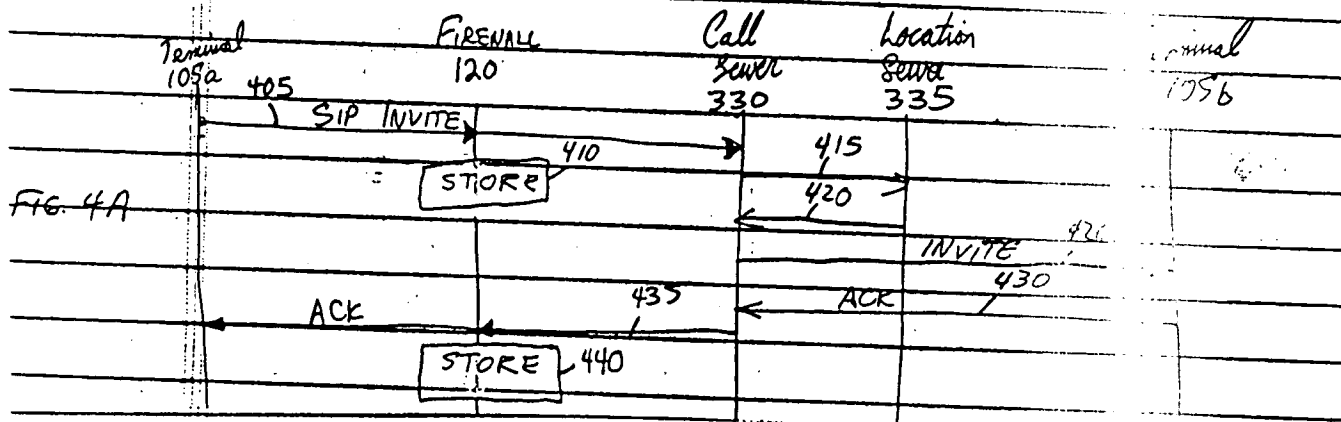 Terminal
105a
FIREWALL
120
Call
Server
330
Location
Server
335
105b
405
SIP INVITE
410
STORE
415
420
FIG. 4A
INVITE
430
ACK
435
ACK
STORE
440